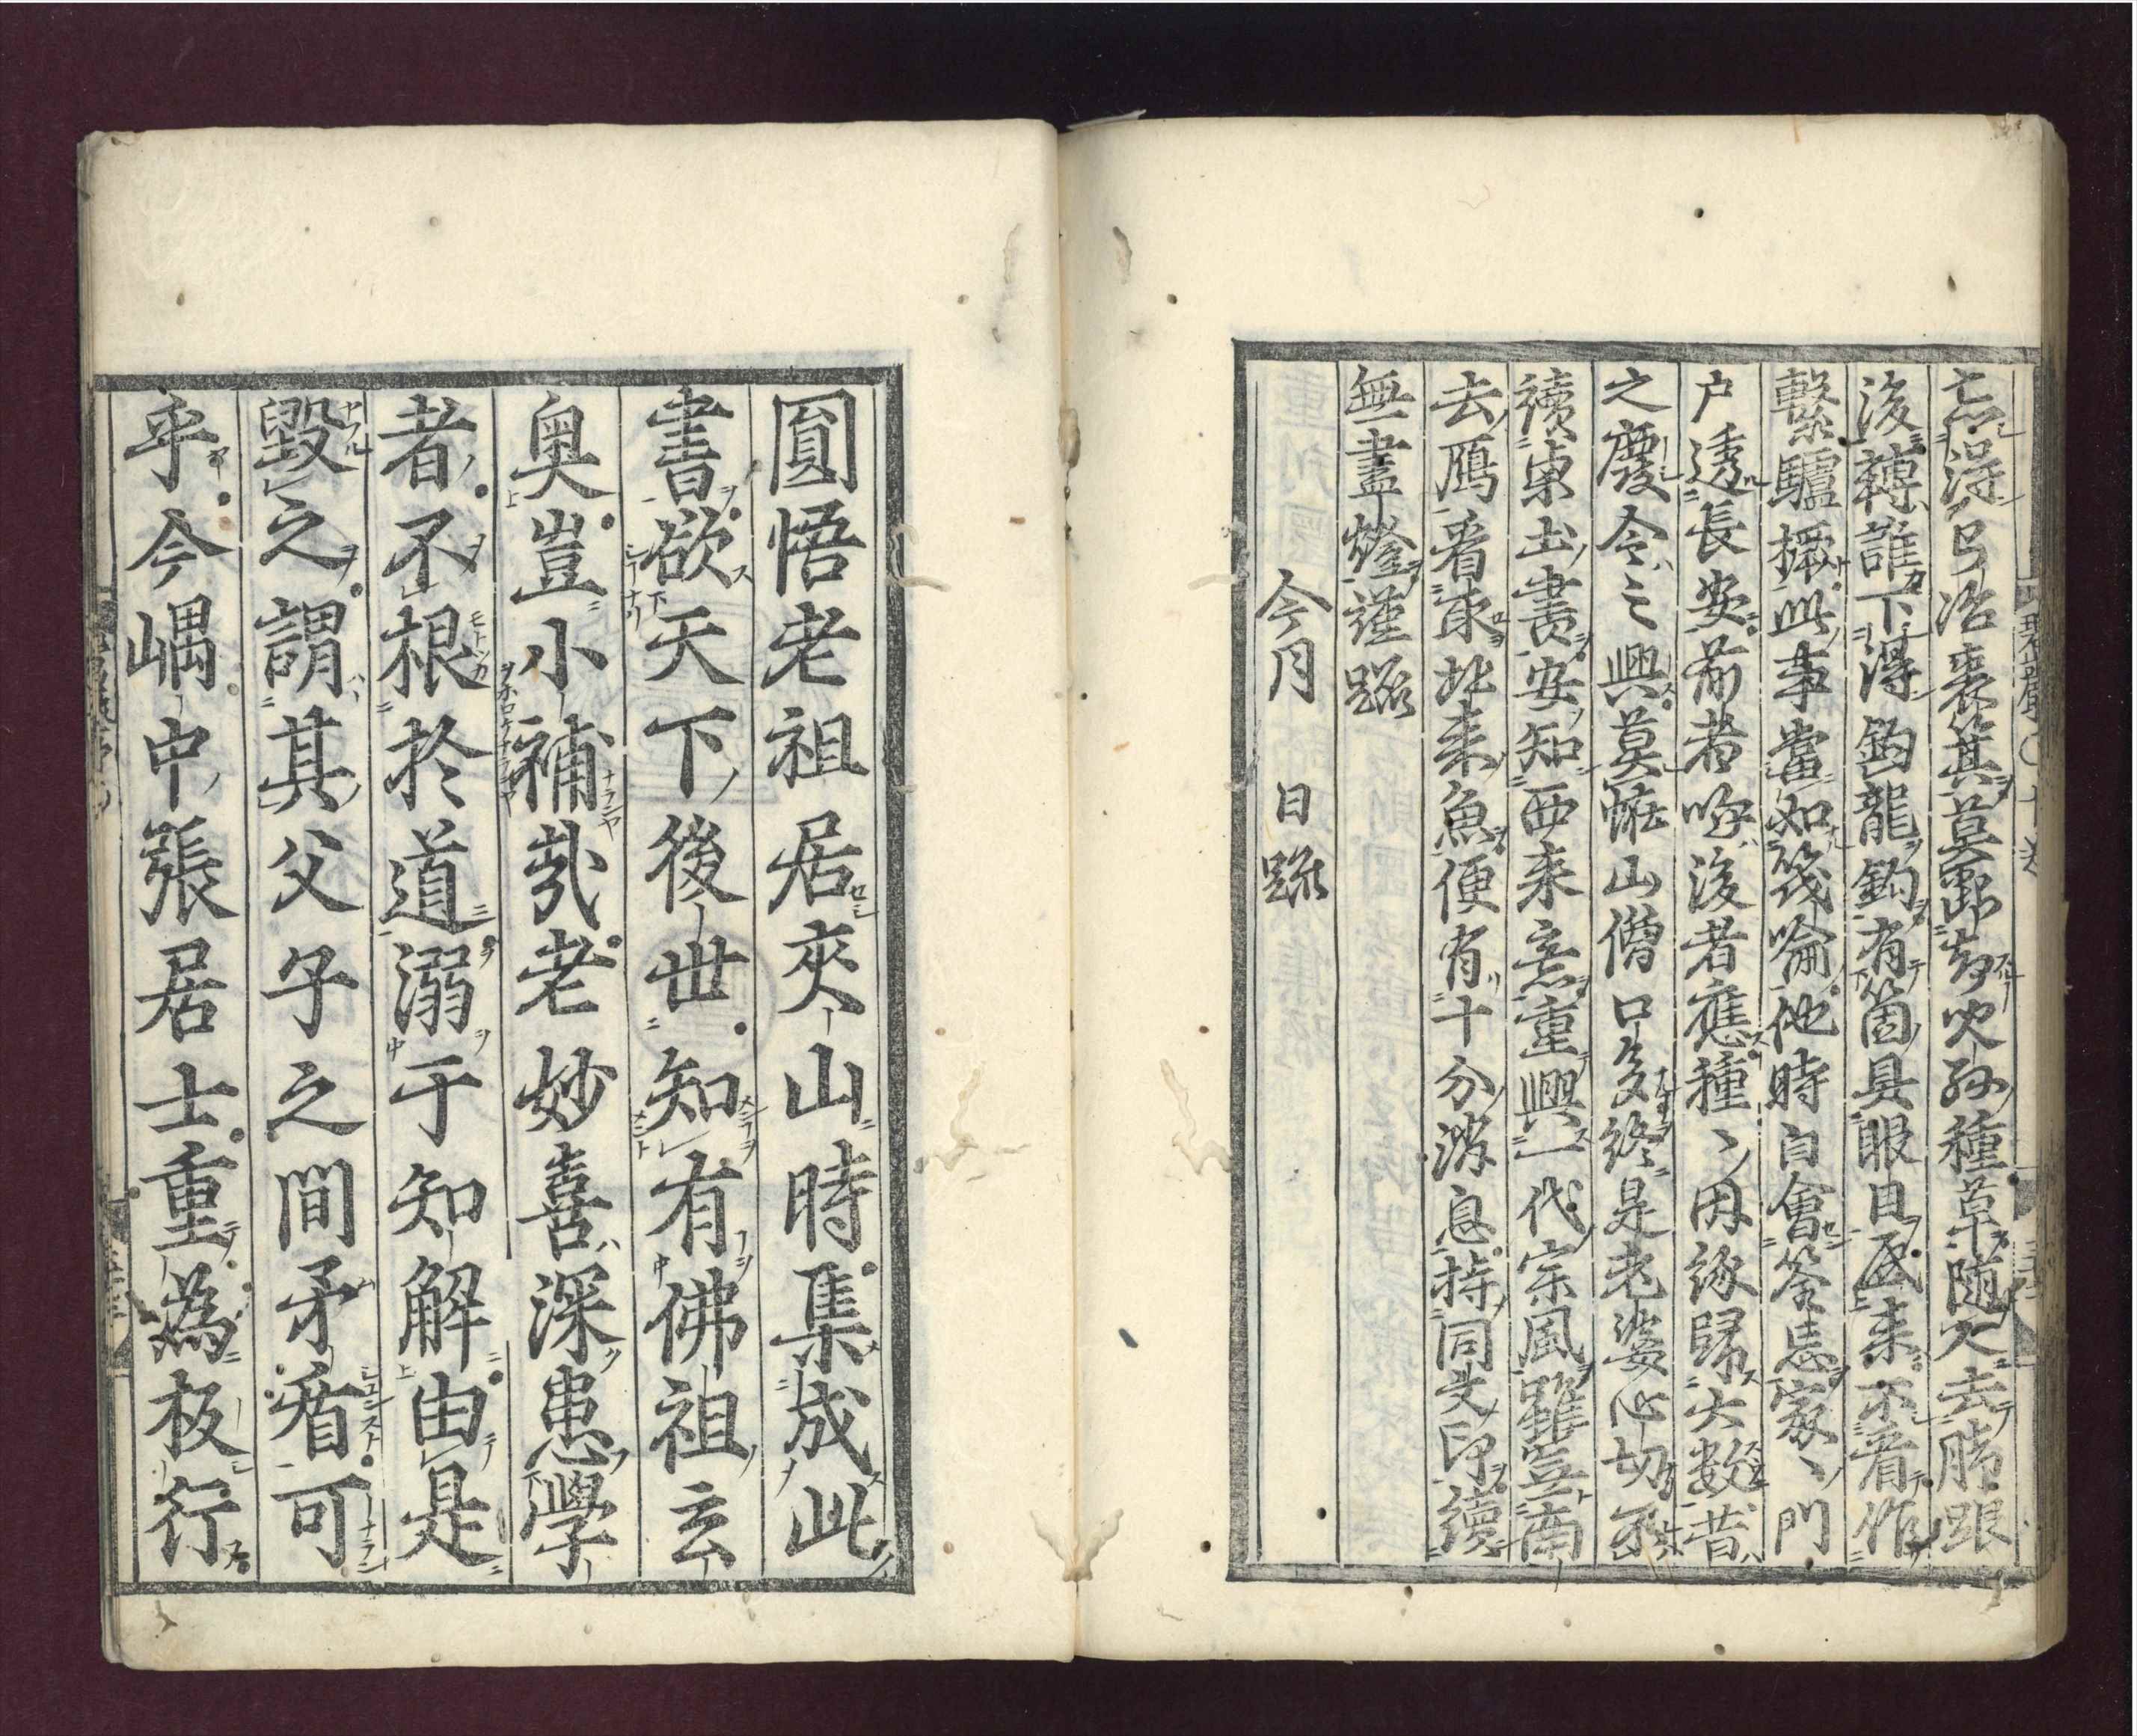 忘淂弓冶裘箕莫鄧却吹糸種草随人去脚跟
後轉誰下淂鈎龍鈎有箇具眼目底来不看作
繫驢撅此事當如筏喩他時自會筌忘家〻門
户透長安前者呼後者應種〻因緣歸大數昔
之廢今之興莫恠山僧口多終是老婆心切不
讀東土書安知西来意重興一代宗風雖豈南
去鴈看取北来魚便有十分消息持同文印續
無盡燈謹䟽
今月　日䟽
圓悟老祖居夾山時集成此
書欲天下後世知有佛祖玄
奥豈小補㢤老妙喜深患學
者不根於道溺于知解由是
毀之謂其父子之間矛盾可
乎今嵎中張居士重為板行